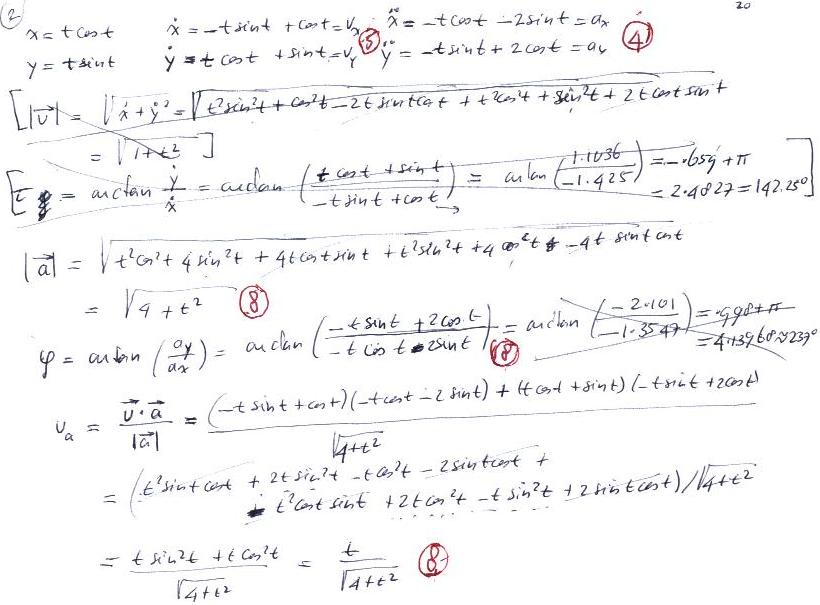 ② 20
x = t cost ẋ = -t sint + cost = vₓ ẍ = -t cost - 2 sint = aₓ
y = t sint ẏ = t cost + sint = v_y ⑤ ÿ = -t sint + 2 cost = a_y ④
[|v⃗| = √(ẋ + ẏ²) = √(t² sin²t + cos²t - 2t sint cost + t² cos²t + sin²t + 2t cost sint)
= √(1+t²) ]
[ = arctan ẏ/ẋ = arctan ((t cost + sint)/(-t sint + cost)) = arctan (1.1036/-1.425) = -.659 + π
= 2.4827 = 142.25° ]
|a⃗| = √(t² cos²t + 4 sin²t + 4t cost sint + t² sin²t + 4 cos²t - 4t sint cost)
= √(4 + t²) ⑧
φ = arctan (ay/ax) = arctan ((-t sint + 2 cost)/(-t cost - 2 sint)) ⑧ = arctan (-2.101/-1.3547) = .998 + π
= 4.1396 ≈ 237°
vₐ = v⃗·a⃗/|a⃗| = ((-t sint + cost)(-t cost - 2 sint) + (t cost + sint)(-t sint + 2 cost))/√(4+t²)
= (t² sint cost + 2t sin²t - t cos²t - 2 sint cost +
- t² cost sint + 2t cos²t - t sin²t + 2 sint cost)/√(4+t²)
= (t sin²t + t cos²t)/√(4+t²) = t/√(4+t²) ⑧